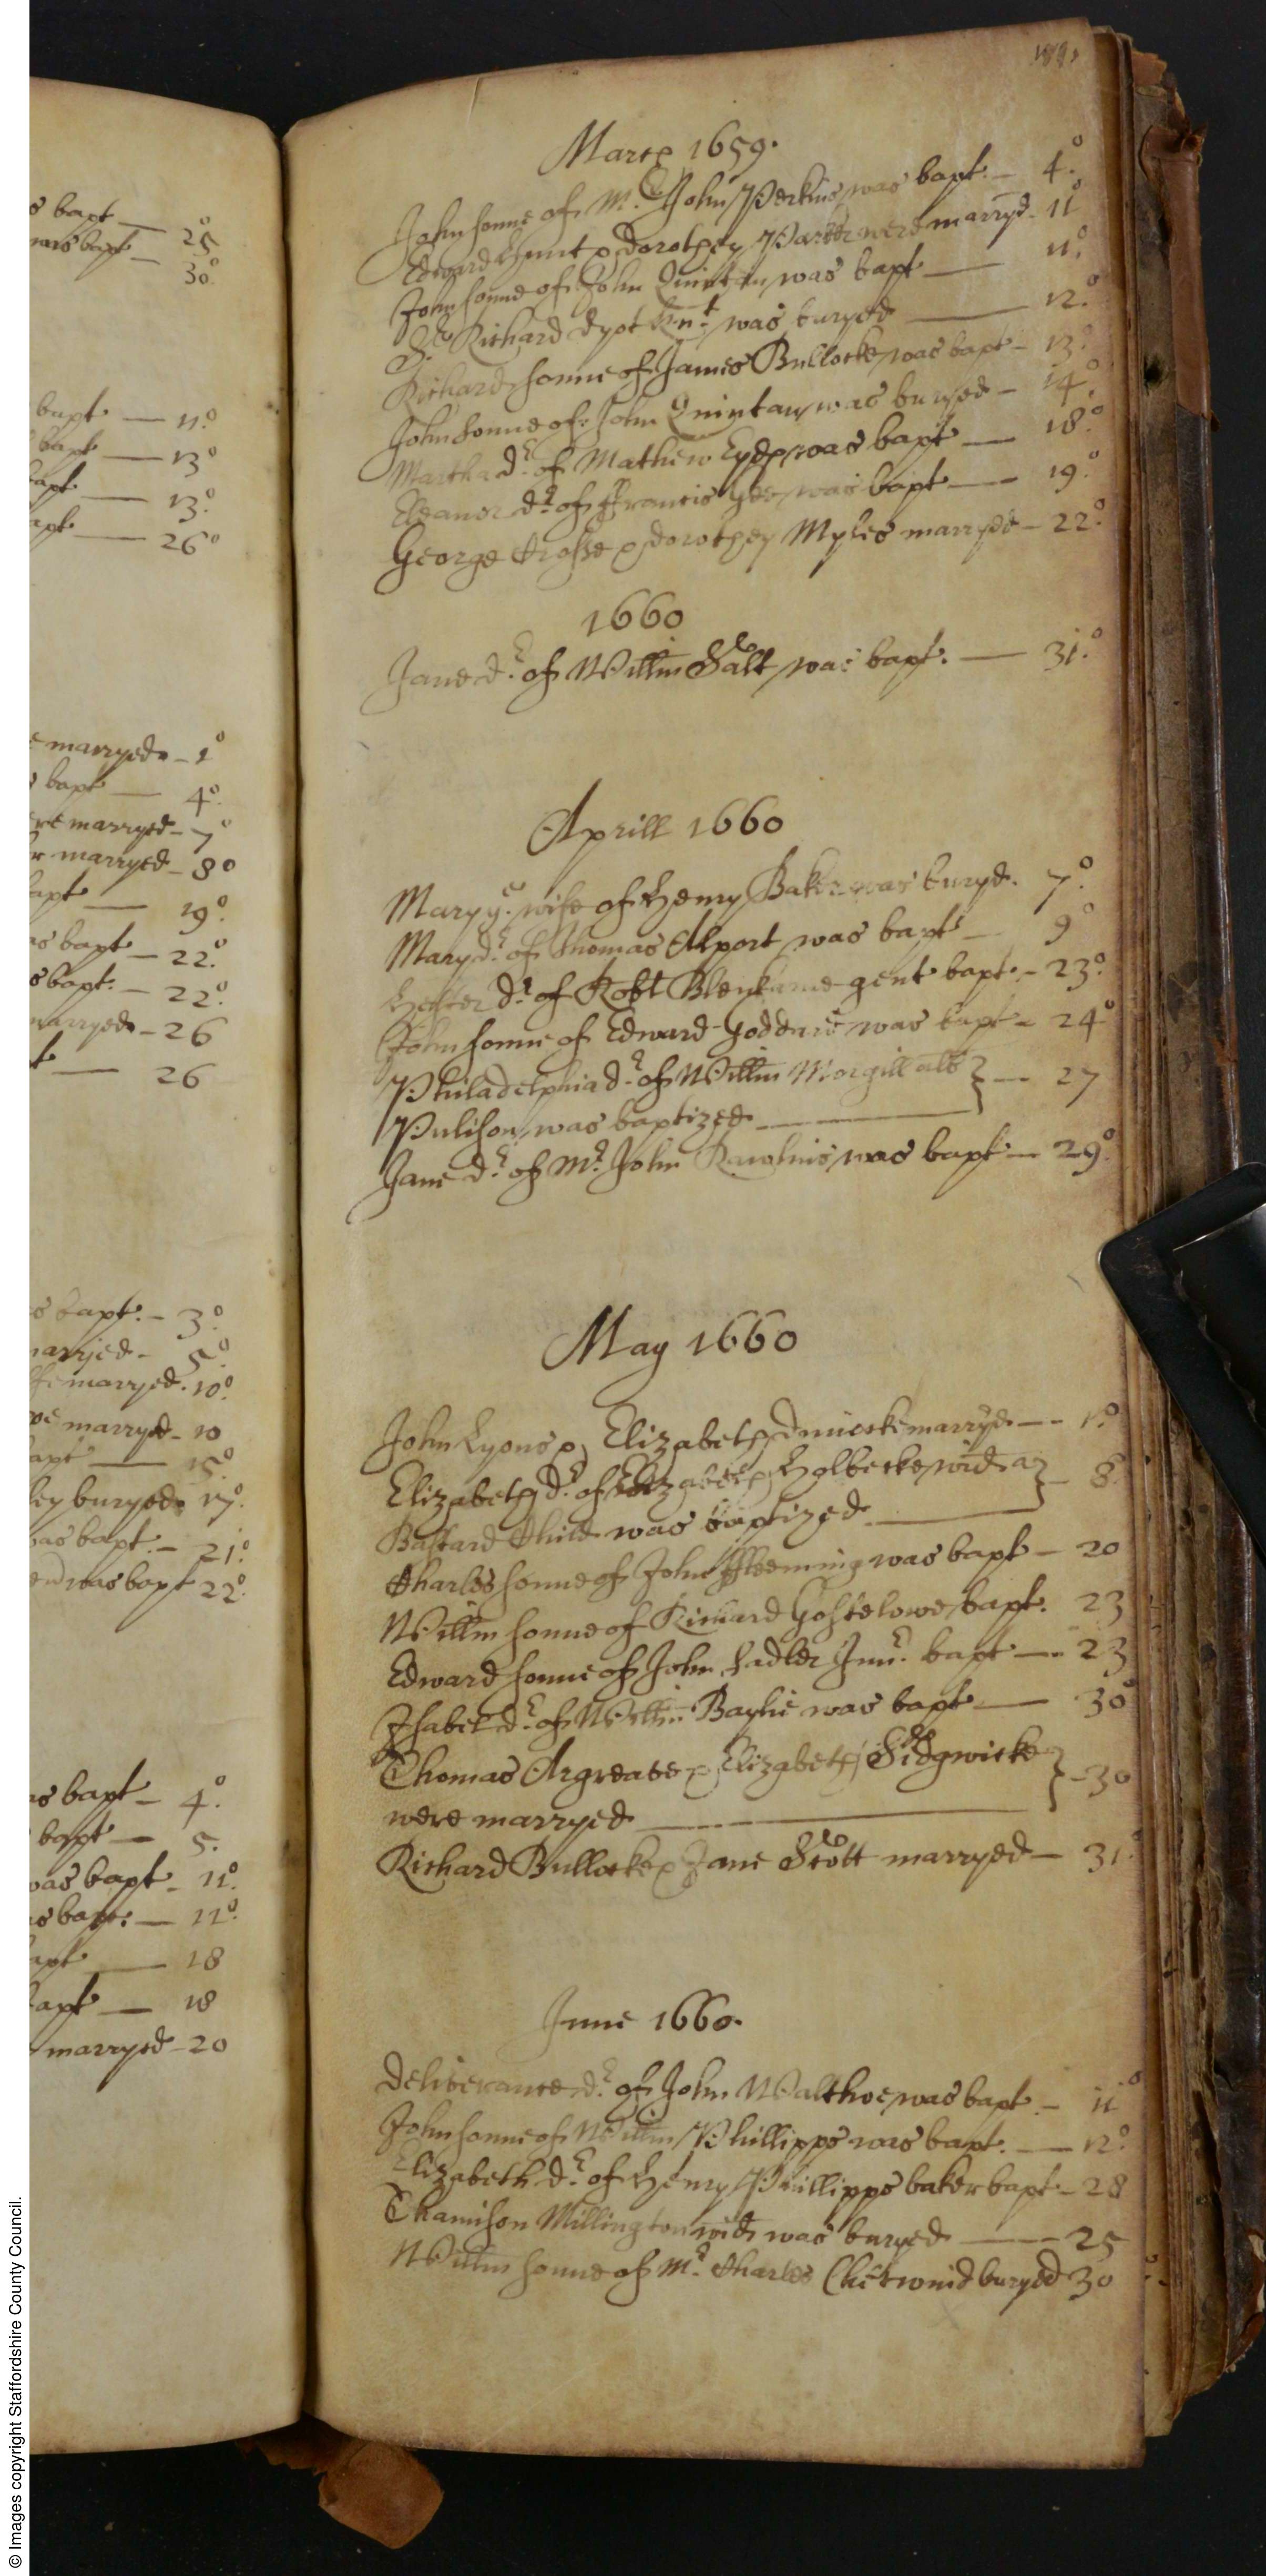 s bapt — 25°
was bapt — 30°
bapt — 11°
bapt — 13°
bapt — 13°
apt — 26°
e marryed — 1°
s bapt — 4°
ere marryed — 7°
r marryed — 8°
bapt — 19°
as bapt — 22°
s bapt. — 22°
marryed — 26
t — 26
s bapt. — 3°
marryed — 5°
marryed. 10°
marryed — 10
apt — 15°
ley buryed 17°
as bapt. — 21°
was bapt 22°
as bapt — 4°
bapt — 5.
was bapt — 11°
s bapt: — 11°
apt — 18
bapt — 18
marryed — 20
March 1659.
John sonne of Mr. John Perkins was bapt — 4°
Edward Hunt & Dorothey Parker were marryd — 11°
John sonne of John Quintan was bapt — 11°
Sr. Richard Dyot Knt. was buryed — 12°
Richard sonne of James Bullocke was bapt — 13°
John sonne of John Quintan was buryed — 14°
Martha dr. of Mathew was bapt — 18°
Eleanor dr. of ffrancis was bapt — 19°
George Crosse & Dorothey Myles marryde — 22°
1660
Jane dr. of Willm Salt was bapt. — 31°
Aprill 1660
Mary ye. wife of Henry Baker was buryd. 7°
Mary dr. of Thomas Alport was bapt — 9°
Hester dr. of Robt gent bapt. — 23°
John sonne of Edward Goddard was bapt — 24°
Philadelphia dr. of Willm Morgill als } — 27
Pulison was baptized —
Jane dr. of Mr. John Rawlins was bapt — 29°
May 1660
John Lyons & Elizabeth marryde — 1°
Elizabeth dr. of Elizabeth Holbecke wid. a } — 8°
Bastard Child was baptized —
Charles sonne of John ffleeming was bapt — 20
Willm sonne of Richard Gostelowe bapt. 23
Edward sonne of John Sadler Junr. bapt — 23
Isabel dr. of Willm Baylie was bapt — 30°
Thomas Argreave & Elizabeth Sidgwicke } — 30
were marryed —
Richard Bullocke & Jane Scott marryed — 31°
June 1660.
Deliverance dr. of John Walthoe was bapt — 11°
John sonne of Willm Phillipps was bapt. — 12°
Elizabeth dr. of Henry Phillipps baker bapt — 28
Thamison Millington wid. was buryed — 25
Willm sonne of Mr. Charles Chetwind buryed 30
© Images copyright Staffordshire County Council.